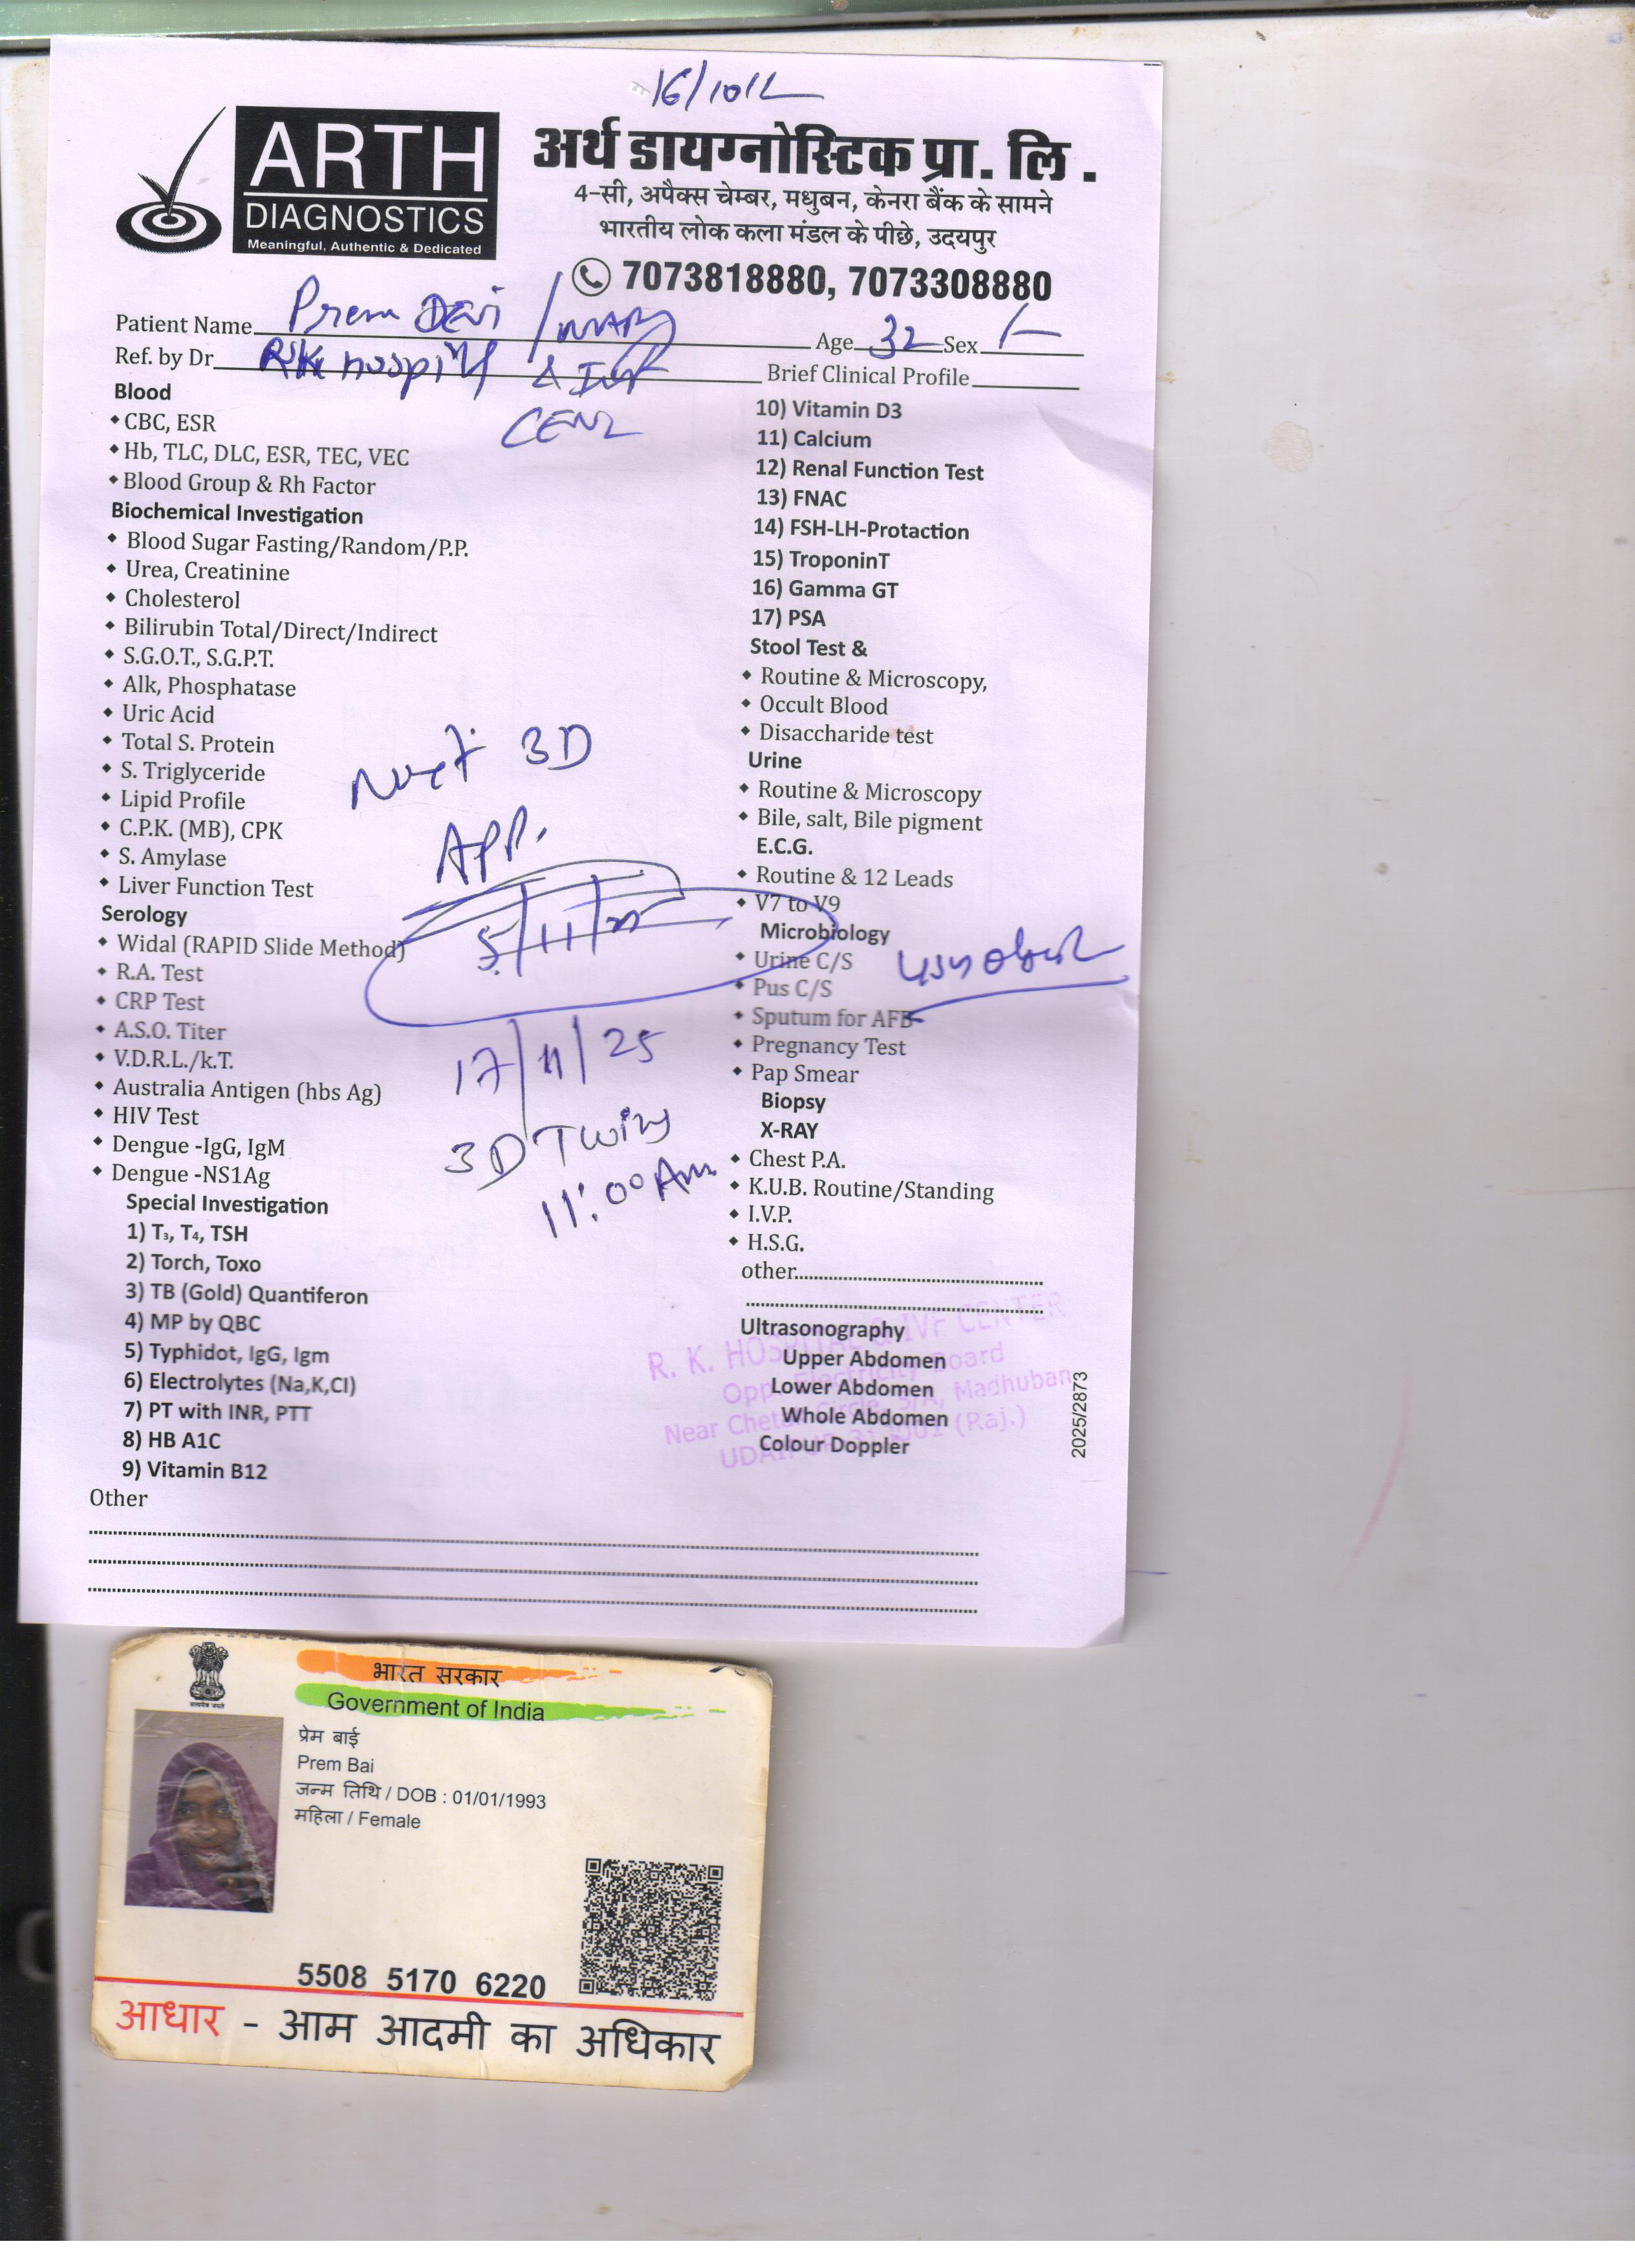 16/10/2
ARTH
DIAGNOSTICS
Meaningful, Authentic & Dedicated
अर्थ डायग्नोस्टिक प्रा. लि .
4-सी, अपैक्स चेम्बर, मधुबन, केनरा बैंक के सामने
भारतीय लोक कला मंडल के पीछे, उदयपुर
7073818880, 7073308880
Patient Name Prem Devi / Age 32 Sex
Ref. by Dr RK Hospital & IVF Brief Clinical Profile
Blood
CBC, ESR
Hb, TLC, DLC, ESR, TEC, VEC
Blood Group & Rh Factor
Biochemical Investigation
Blood Sugar Fasting/Random/P.P.
Urea, Creatinine
Cholesterol
Bilirubin Total/Direct/Indirect
S.G.O.T., S.G.P.T.
Alk, Phosphatase
Uric Acid
Total S. Protein
S. Triglyceride
Lipid Profile
C.P.K. (MB), CPK
S. Amylase
Liver Function Test
Serology
Widal (RAPID Slide Method)
R.A. Test
CRP Test
A.S.O. Titer
V.D.R.L./k.T.
Australia Antigen (hbs Ag)
HIV Test
Dengue -IgG, IgM
Dengue -NS1Ag
Special Investigation
1) T₃, T₄, TSH
2) Torch, Toxo
3) TB (Gold) Quantiferon
4) MP by QBC
5) Typhidot, IgG, Igm
6) Electrolytes (Na,K,Cl)
7) PT with INR, PTT
8) HB A1C
9) Vitamin B12
Other
Next 3D
APP.
5/11/25
17/11/25
3D Twins
11:00 Am
10) Vitamin D3
11) Calcium
12) Renal Function Test
13) FNAC
14) FSH-LH-Protaction
15) TroponinT
16) Gamma GT
17) PSA
Stool Test &
Routine & Microscopy,
Occult Blood
Disaccharide test
Urine
Routine & Microscopy
Bile, salt, Bile pigment
E.C.G.
Routine & 12 Leads
V7 to V9
Microbiology
Urine C/S
Pus C/S
Sputum for AFB
Pregnancy Test
Pap Smear
Biopsy
X-RAY
Chest P.A.
K.U.B. Routine/Standing
I.V.P.
H.S.G.
other
Ultrasonography
Upper Abdomen
Lower Abdomen
Whole Abdomen
Colour Doppler
R. K. HOSPITAL & IVF CENTER
Opp. Electricity Board
Near Chetak Circle, 5/A, Madhuban
UDAIPUR-313001 (Raj.)
2025/2873
भारत सरकार
Government of India
प्रेम बाई
Prem Bai
जन्म तिथि / DOB : 01/01/1993
महिला / Female
5508 5170 6220
आधार - आम आदमी का अधिकार